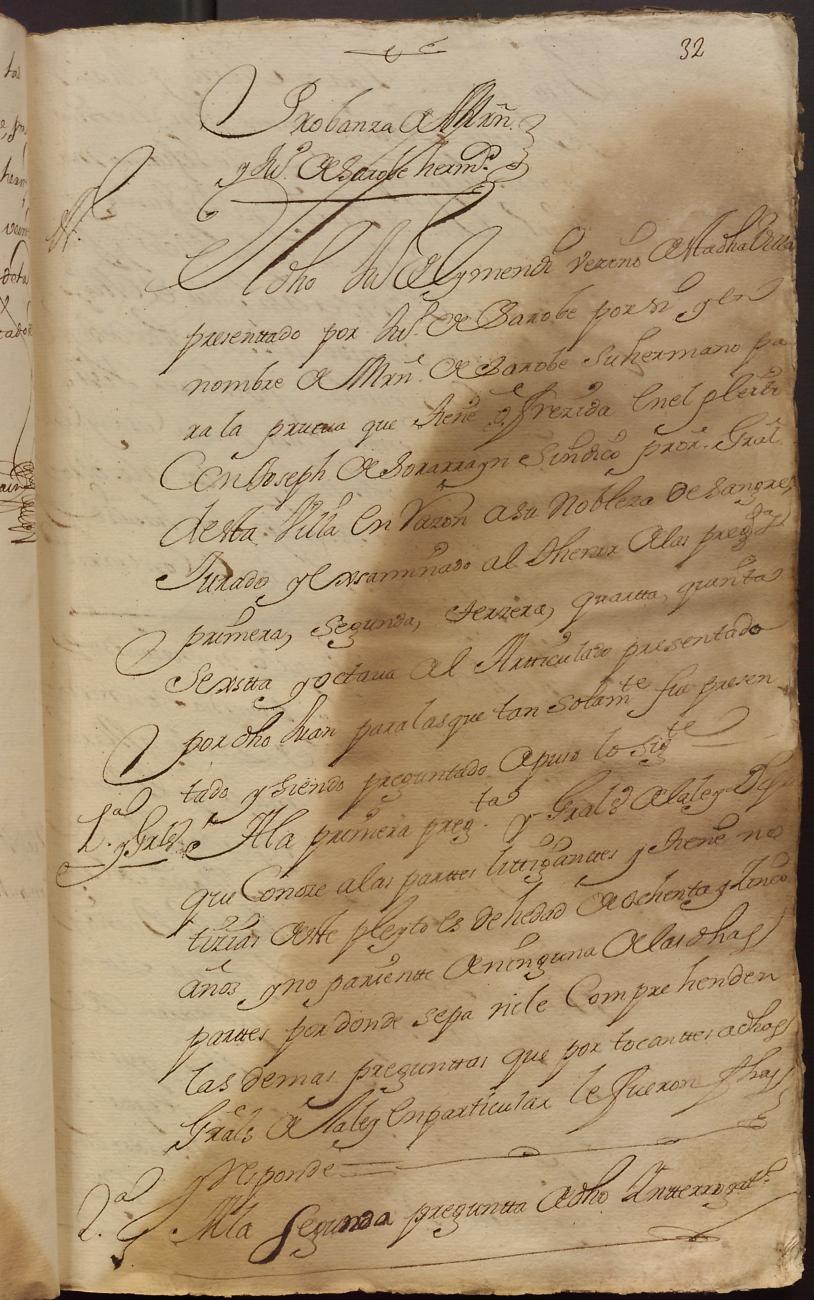 32
Probanza de Mrñ.
y Ju.º de Sarobe herm.ˢ
El dho Ju.º de Lymendi vezino de sta dha Villa
presenttado por Ju.º de Sarobe por si y en
nombre de Mrñ. de Sarobe su hermano pa
ra la prueua que tiene ofrezida en el pleito
Con Joseph de sindico pror. Gral
de sta Villa en Razon a su Nobleza de Sangre,
Jurado y exsaminado al thenor de las preg.ᵗᵃˢ
primera, segunda, terzera, quartta, quinta
sexstta y octaua del Artticulado presentado
por dho Juan para las que tan solam.ᵗᵉ fue presen
tado y siendo preguntado depuso lo sig.ᵗᵉ
1.ª y Grâls A la primera preg.ᵗᵃ y Grâls de la ley Dijo
que Conoze a las parttes littiganttes y tiene no
tizias de ste pleyto es de hedad de ochenta y Zinco
años y no parientte de ninguna de las dhas
parttes por donde sepa ni le Comprehenden
las demas preguntta que por tocanttes a dhas
Grâls de la ley en particular le fueron fhas
y rresponde
2.ª A la Segunda preguntta de dho Ynterrogat.º